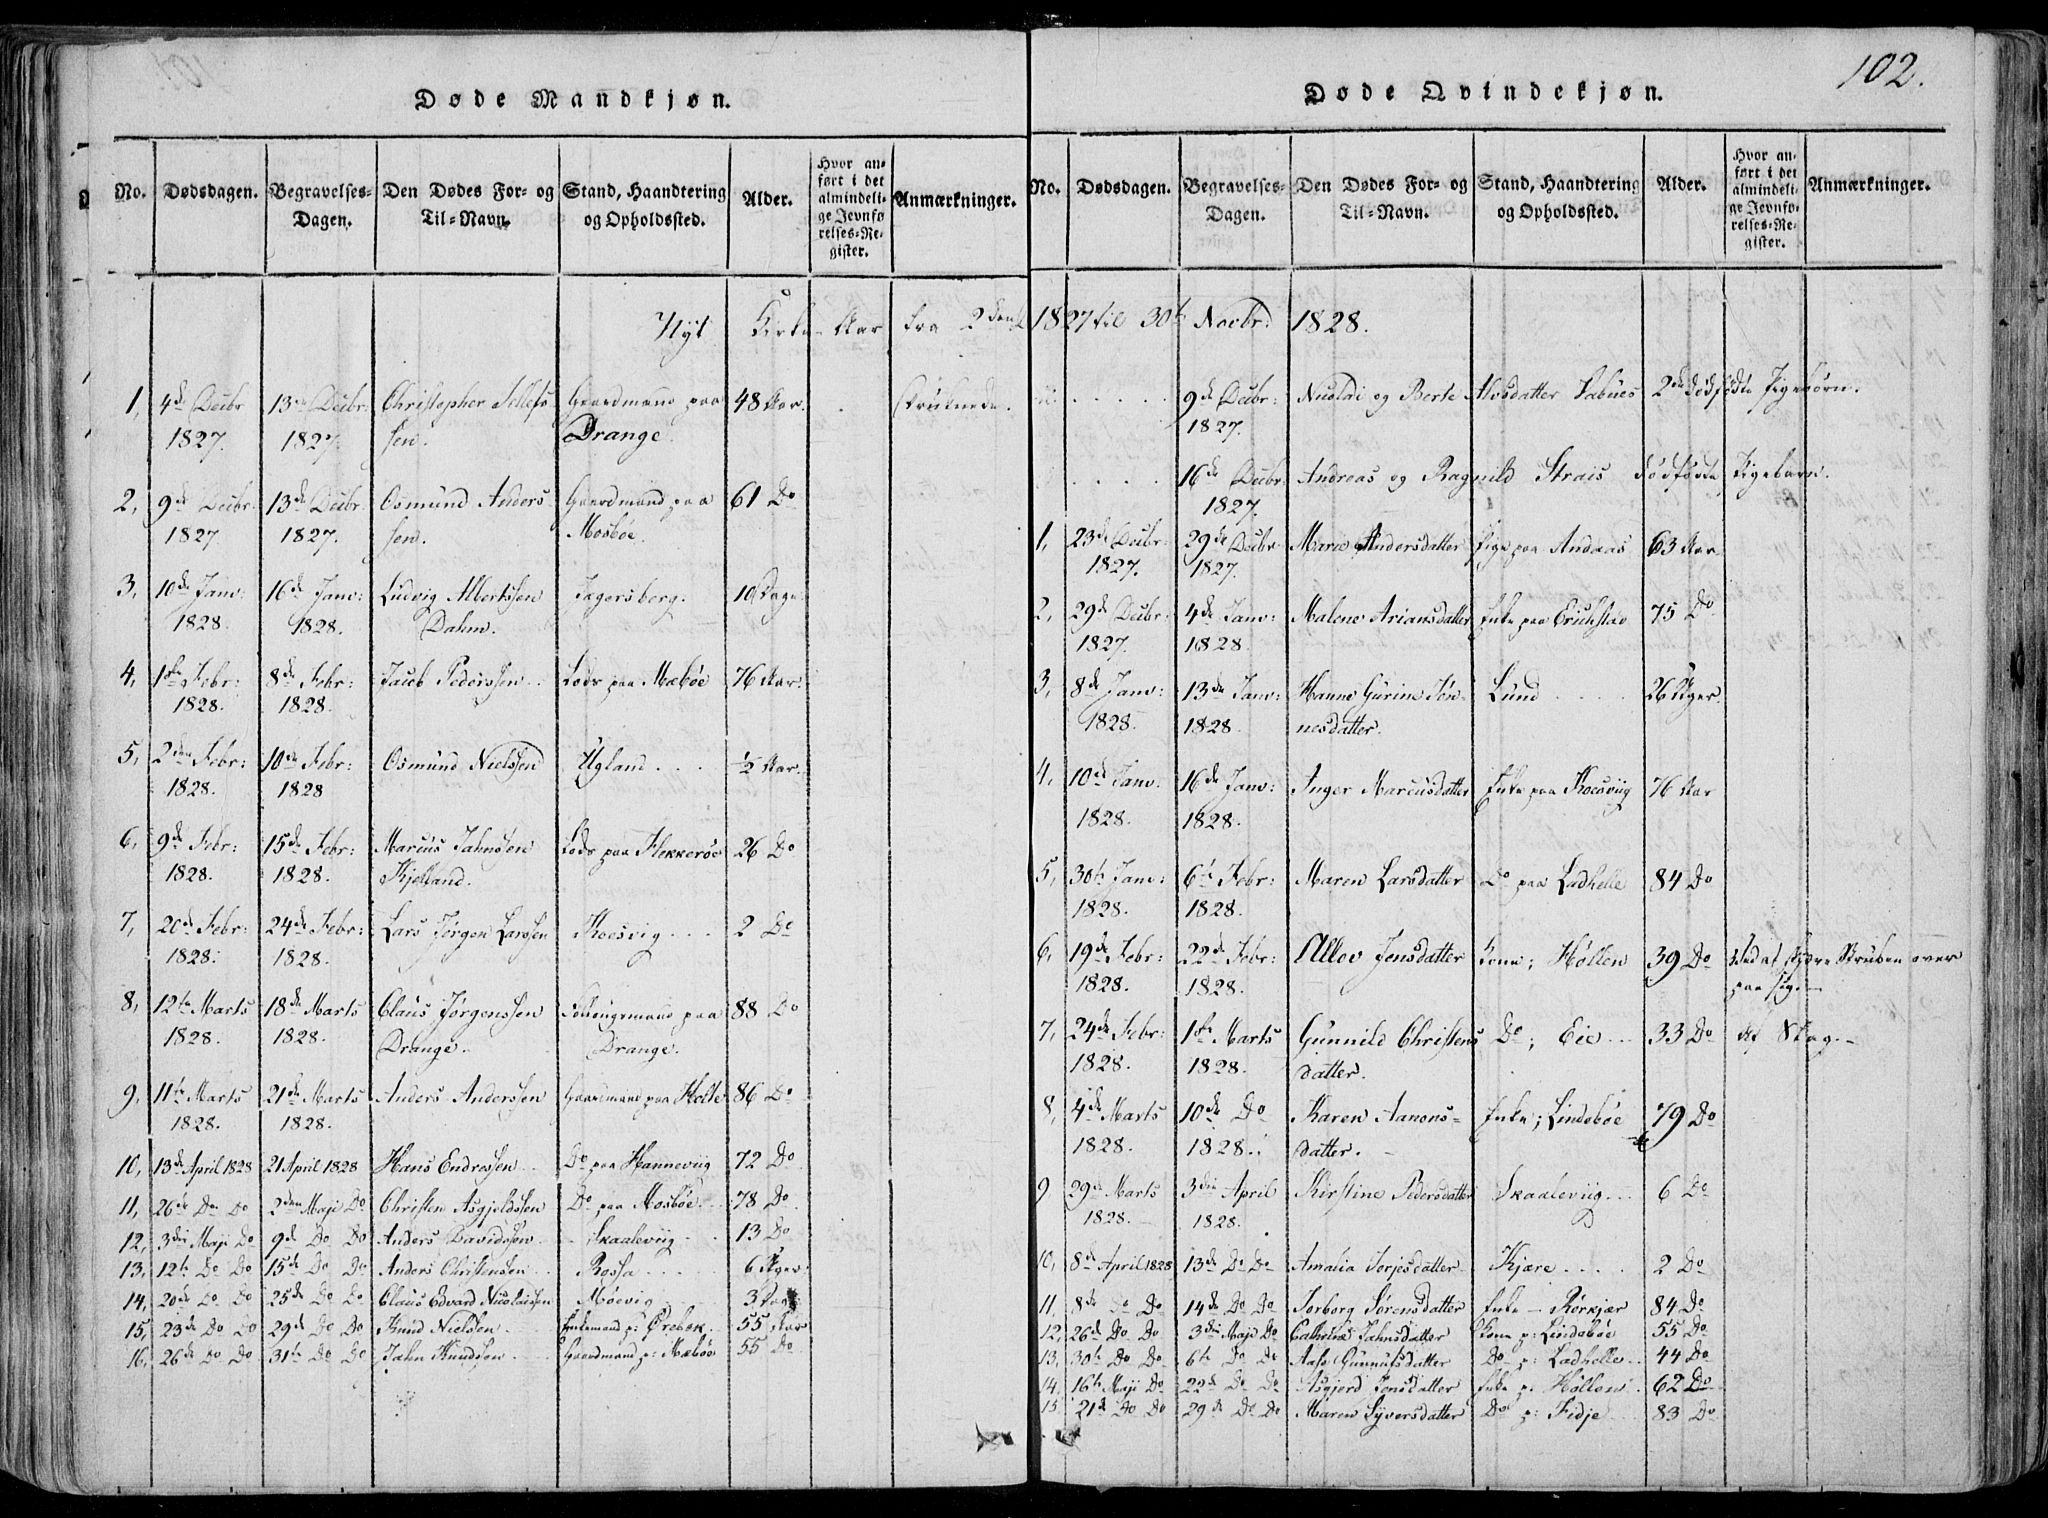 102.
Døde Mandkjøn.
No. Dødsdagen. Begravelses-Dagen. Den Dødes For- og Til-Navn. Stand, Haandtering og Opholdssted. Alder. Hvor anført i det almindelige Jevnførelses-Register. Anmærkninger.
Nyt Kirke-Aar fra 2den 1827 til 30te Novbr: 1828.
1, 4de Decbr 13de Decbr: Christopher Gaardmand paa 48 Aar. druknede.
1827. 1827. sen. Drange.
2, 9de Decbr: 13de Decbr. Osmund Anders Gaardmand paa 61 Do
1827 1827. sen. Mosbøe.
3, 10de Janv: 16de Janv: Ludvig Albertssen Jegersberg. 10 Dage
1828. 1828. Dahm.
4, 1ste Febr: 8de Febr: Jacob Pederssen Lods paa Mæbøe 76 Aar.
1828. 1828.
5, 2den Febr: 10de Febr: Osmund Nielssen Ugland ½ Aar.
1828. 1828
6, 9de Febr: 15de Febr: Marcus Jahnssen Lods paa Flekkerøe 26 Do
1828. 1828. Kjelland.
7, 20de Febr: 24de Febr: Lars Jørgen Larssen Koesvig 2 Do
1828. 1828.
8, 12te Marts 18de Marts Claus Jørgenssen Føderaadsmand paa 88 Do
1828. 1828. Drange. Drange.
9, 11te Marts 21de Marts Anders Anderssen Gaardmand paa Holte 86 Do
1828. 1828.
10, 13de April 1828 21 April 1828 Hans Endressen Do paa Hanneviig 72 Do
11, 26de Do Do 2den Maji Do Christen Asgjeldssen Do paa Mosbøe 78 Do
12, 3die Maji Do 9de Do Do Anders Davidssen Skaaleviig 13 Do
13, 12te Do Do 15de Do Do Anders Christenssen Rossa 6 Uger
14, 20de Do Do 25de Do Do Claus Edvard Nicolaissen Møevig 3 Dage
15, 23de Do Do 29de Do Do Knud Nielssen Enkemand p: Ørebek 55 Aar
16, 26de Do Do 31te Do Do Jahn Knudssen Gaardmand p: Mæbøe 55 Do
Døde Qvindekjøn.
No. Dødsdagen. Begravelses-Dagen. Den Dødes For- og Til-Navn. Stand, Haandtering og Opholdssted. Alder. Hvor anført i det almindelige Jevnførelses-Register. Anmærkninger.
9de Decbr: Nicolai og Berte Alvsdatter Aabues 2de dødfødte Pigebørn.
1827.
16de Decbr: Andreas og Ragnild Strais dødfødte Pigebarn.
1827.
1, 23de Decbr: 29de Decbr Maren Andersdatter Pige paa Andaas 63 Aar
1827. 1827.
2, 29de Decbr: 4de Janv: Malene Ariansdatter Enke paa Erichstad 75 Do
1827. 1828
3, 8de Janv: 13de Janv: Hanne Gurine Tøn- Lund 26 Uger.
1828. 1828. nesdatter.
4, 10de Janv: 16de Janv: Inger Marcusdatter Enke paa Koesviig 76 Aar
1828. 1828.
5, 30te Janv: 6te Febr: Maren Larsdatter Do paa Ladhelle 84 Do
1828. 1828.
6, 19de Febr: 22de Febr: Allov Jensdatter Kone; Høllen 39 Do Ved at skjære Struben over
1828. 1828. paa sig.
7, 24de Febr: 1ste Marts Gunnild Christens Do; Eie 33 Do Af Slag.
1828. 1828. datter.
8, 4de Marts 10de Do Karen Aanons- Enke; Lindebøe 79 Do
1828. 1828. datter.
9 29de Marts 3die April Kirstine Pedersdatter Skaaleviig 6 Do
1828. 1828.
10, 8de April 1828 13de Do Do Amalia Terjesdatter Kjære 2 Do
11, 8de Do Do 14de Do Do Torborg Sørensdatter Enke Rørkjær 84 Do
12, 26de Do Do 3die Maji Do Cathrine Jahnsdatter Kone p: Lindebøe 55 Do
13, 30te Do Do 6te Do Do Aase Gunnufsdatter Do p: Ladhelle 44 Do
14, 16te Maji Do 22de Do Do Asgjerd Jensdatter Enke p: Høllen 62 Do
15 21de Do Do 29de Do Do Maren Syversdatter Do p: Fidje 83 Do